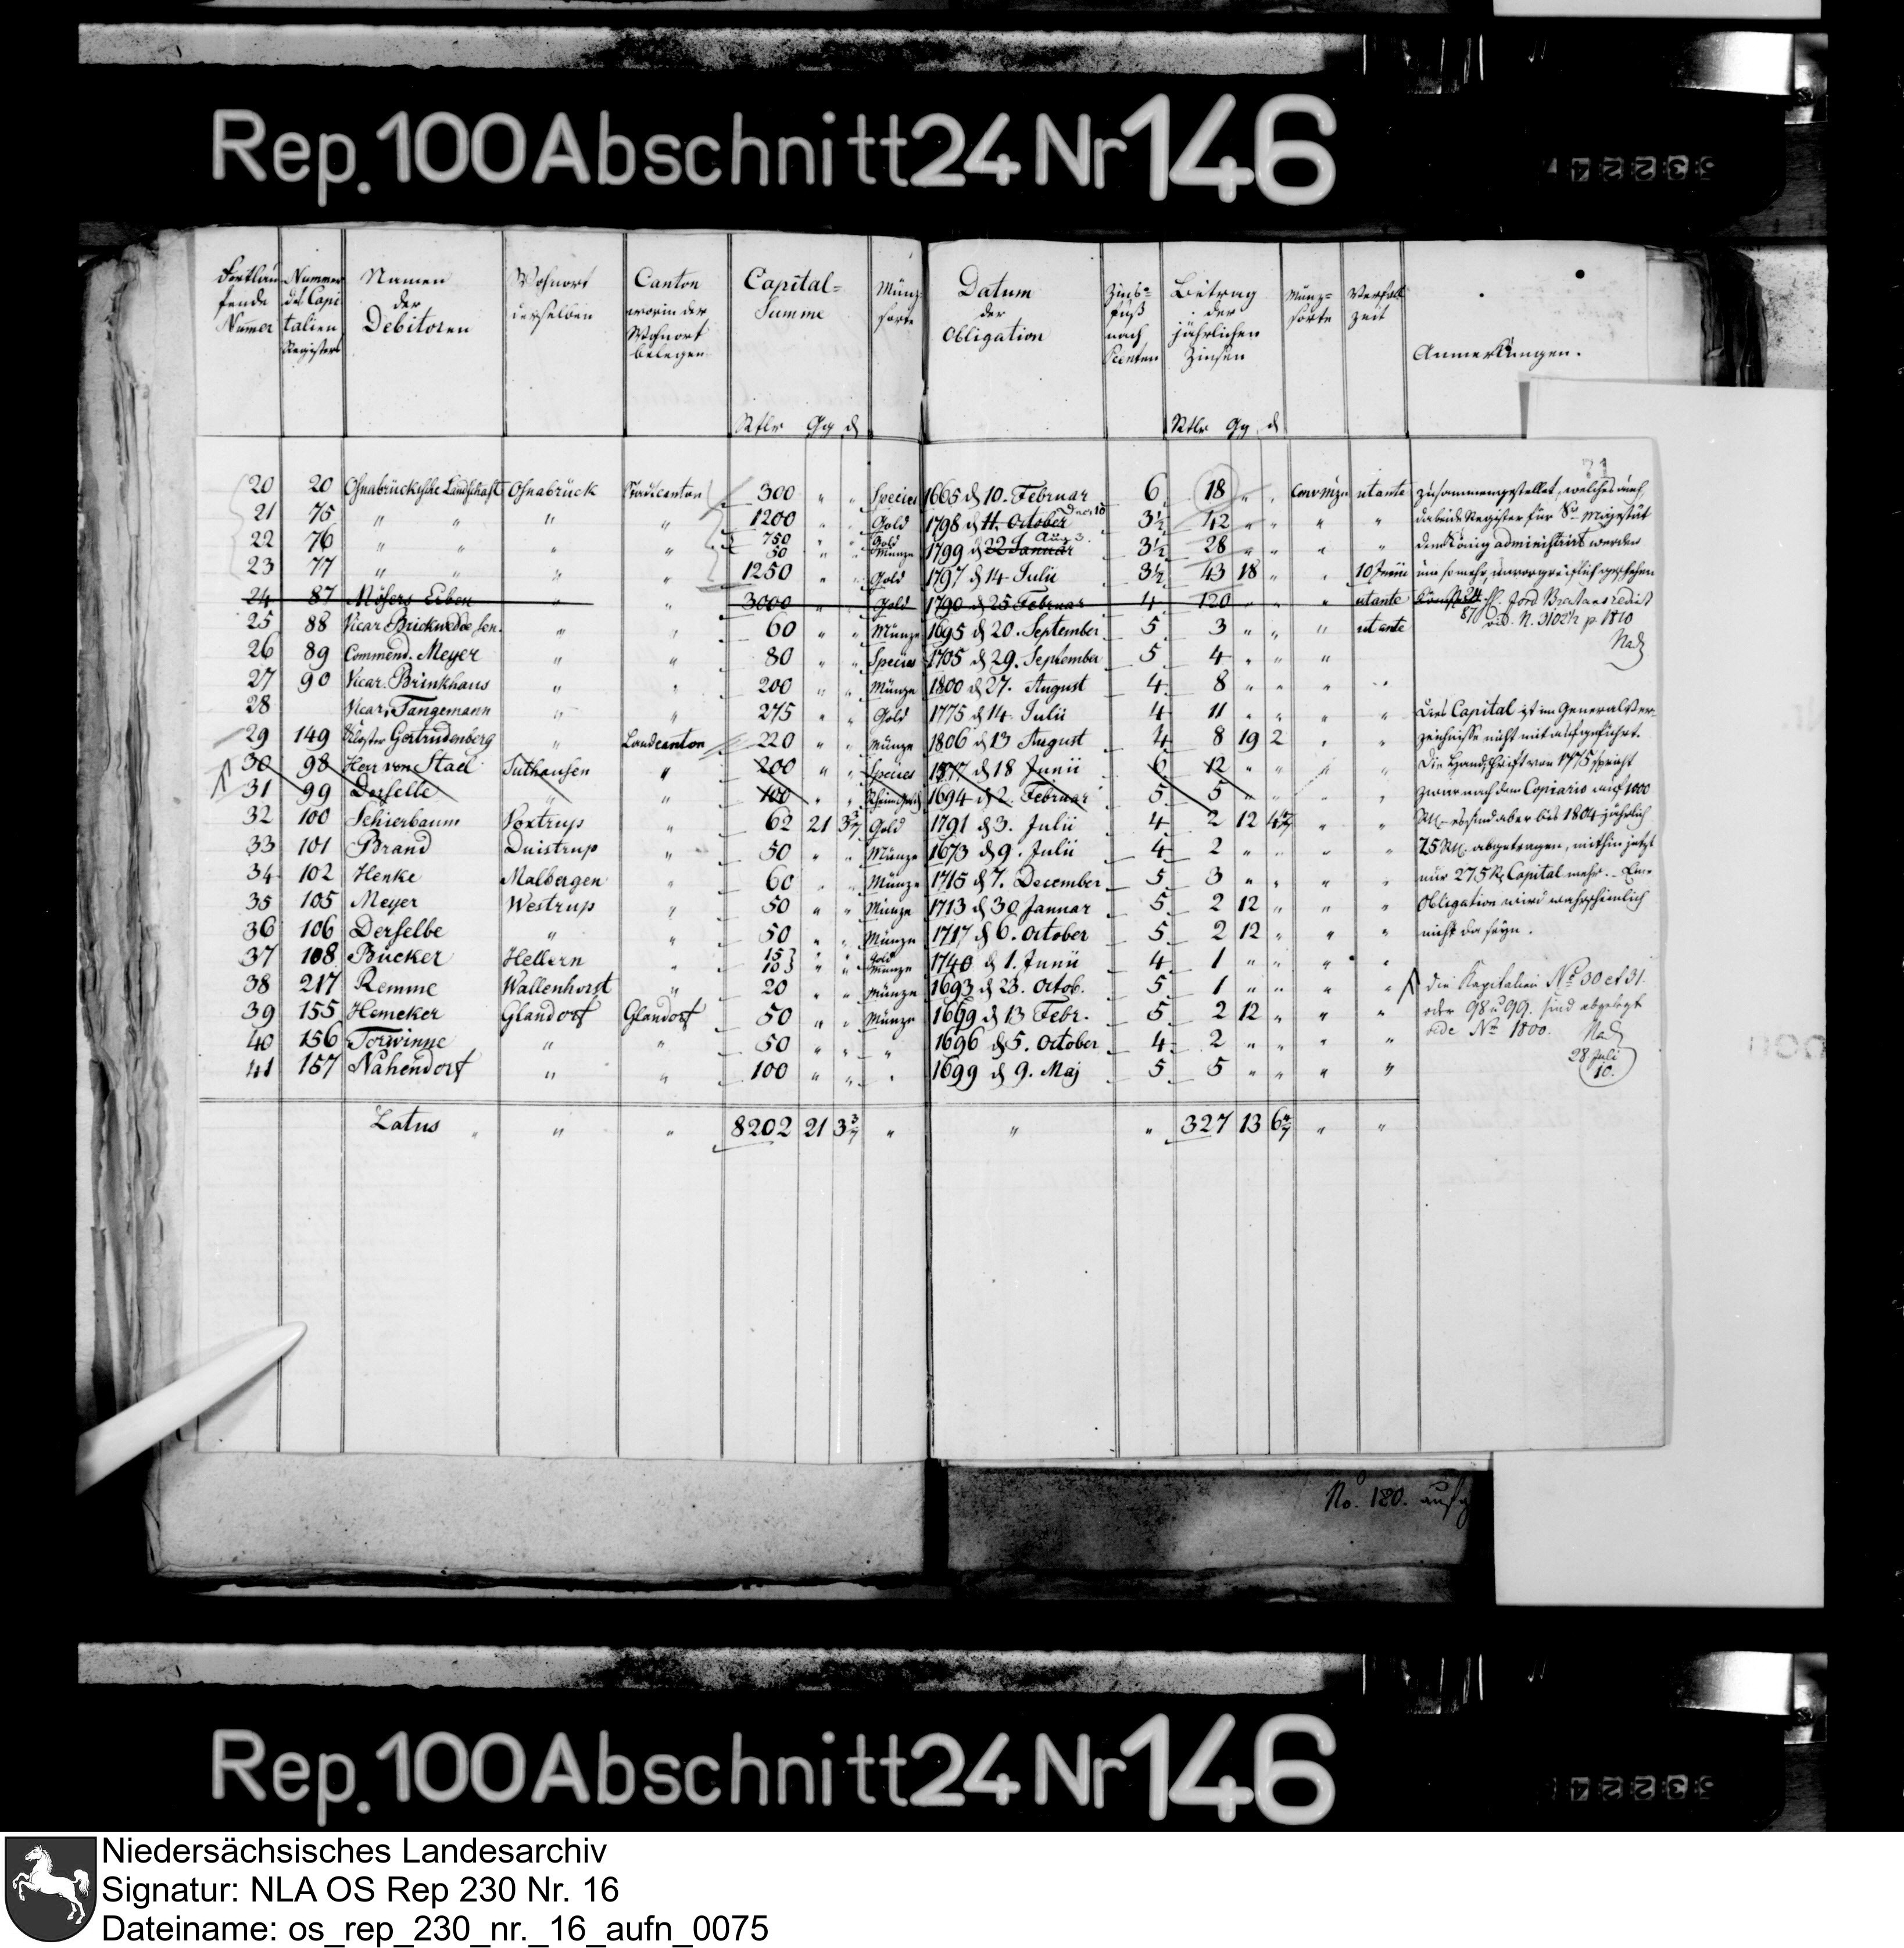 Rep. 100 Abschnitt 24 Nr 146
Fortlaufende Nummer | Nummer des Capitalien Registers | Namen der Debitoren | Wohnort derselben | Canton worin der Wohnort belegen | Capital-Summe Rtlr Gg d | Münzsorte | Datum der Obligation | Zinsfuß nach Pcenten | Betrag der jährlichen Zinsen Rtlr Gg d | Münzsorte | Verfallzeit | Anmerkungen.
71
20 20 Osnabrückische Landschaft Osnabrück Stadtcanton 300 " " Species 1665 d 10. Februar 6 18 " " Convmze ut ante
21 75 " " " " 1200 " " Gold 1798 d 11. October Decr 10 3½ 42 " " " "
22 76 " " " " 750 " " Gold 50 " " Münze 1799 d 22 Januar Aug 3. 3½ 28 " " " "
23 77 " " " " 1250 " " Gold 1797 d 14 Julii 3½ 43 18 " " 10 Junii
24 87 Mösers Erben " " 3000 " " Gold 1790 d 25 Februar 4 120 " " " ut ante
25 88 Vicar. Brickwedde sen. " " 60 " " Münze 1695 d 20. September 5 3 " " " ut ante
26 89 Commend. Meyer " " 80 " " Species 1705 d 29. September 5 4 " " "
27 90 Vicar. Brinkhaus " " 200 " " Münze 1800 d 27. August 4 8 " " " "
28 Vicar. Tangemann " " 275 " " Gold 1775 d 14. Julii 4 11 " " " "
29 149 Kloster Gertrudenberg " Landcanton 220 " " Münze 1806 d 13 August 4 8 19 2 " "
30 98 Herr von Stael Suthausen " 200 " " Species 1677 d 18 Junii 6 12 " " " "
31 99 Derselbe " " 100 " " 1694 d 2. Februar 5 5 " " " "
32 100 Schierbaum Voxtrup " 62 21 3 3/7 Gold 1791 d 3. Julii 4 2 12 4 4/7 " "
33 101 Brand Duistrup " 50 " " Münze 1673 d 9. Julii 4 2 " " " "
34 102 Henke Malbergen " 60 " " Münze 1715 d 7. December 5 3 " " " "
35 105 Meyer Westrup " 50 " " Münze 1713 d 30 Januar 5 2 12 " " "
36 106 Derselbe " " 50 " " Münze 1717 d 6. October 5 2 12 " " "
37 108 Bücker Hellern " 15 " " Gold 10 " " Münze 1740 d 1. Junii 4 1 " " " "
38 217 Remme Wallenhorst " 20 " " Münze 1693 d 23. Octob. 5 1 " " " "
39 155 Hemeker Glandorf Glandorf 50 " " Münze 1699 d 13 Febr. 5 2 12 " " "
40 156 Torwinne " " 50 " " " 1696 d 5. October 4 2 " " " "
41 157 Nahendorf " " 100 " " " 1699 d 9. Maj 5 5 " " " "
Latus " " " 8202 21 3 3/7 " " " 327 13 6 4/7 " "
zusammengestellet, welches auch,
da beide Register für Sr Majestät
dem König administrirt werden
um so mehr unvorgreiflich geschehen
vid. N. 3102½ p 1810
Dies Capital ist im Generalver-
zeichnisse nicht mit aufgeführt.
Die Handschrift von 1775 spricht
zwar nach dem Copiario auf 1000
Rtl. es sind aber bis 1804 jährlich
25 Rtl. abgetragen, mithin jetzt
nur 275 Rt Capital mehr. – Eine
Obligation wird wahrscheinlich
nicht da seyn.
Die Kapitalien No 30 et 31.
oder 98 u 99. sind abgelegt
vide No 1800.
28 Juli
10.
No. 180.
Rep. 100 Abschnitt 24 Nr 146
Niedersächsisches Landesarchiv
Signatur: NLA OS Rep 230 Nr. 16
Dateiname: os_rep_230_nr._16_aufn_0075